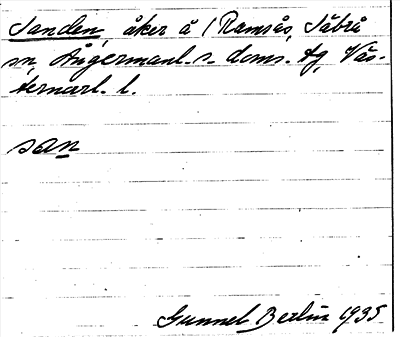 Sanden, åker å /Ramsås, Säbrå
sn, Ångermanl. s. doms. tg, Väs-
ternorrl. l.
san
Gunnel Berlin 1935